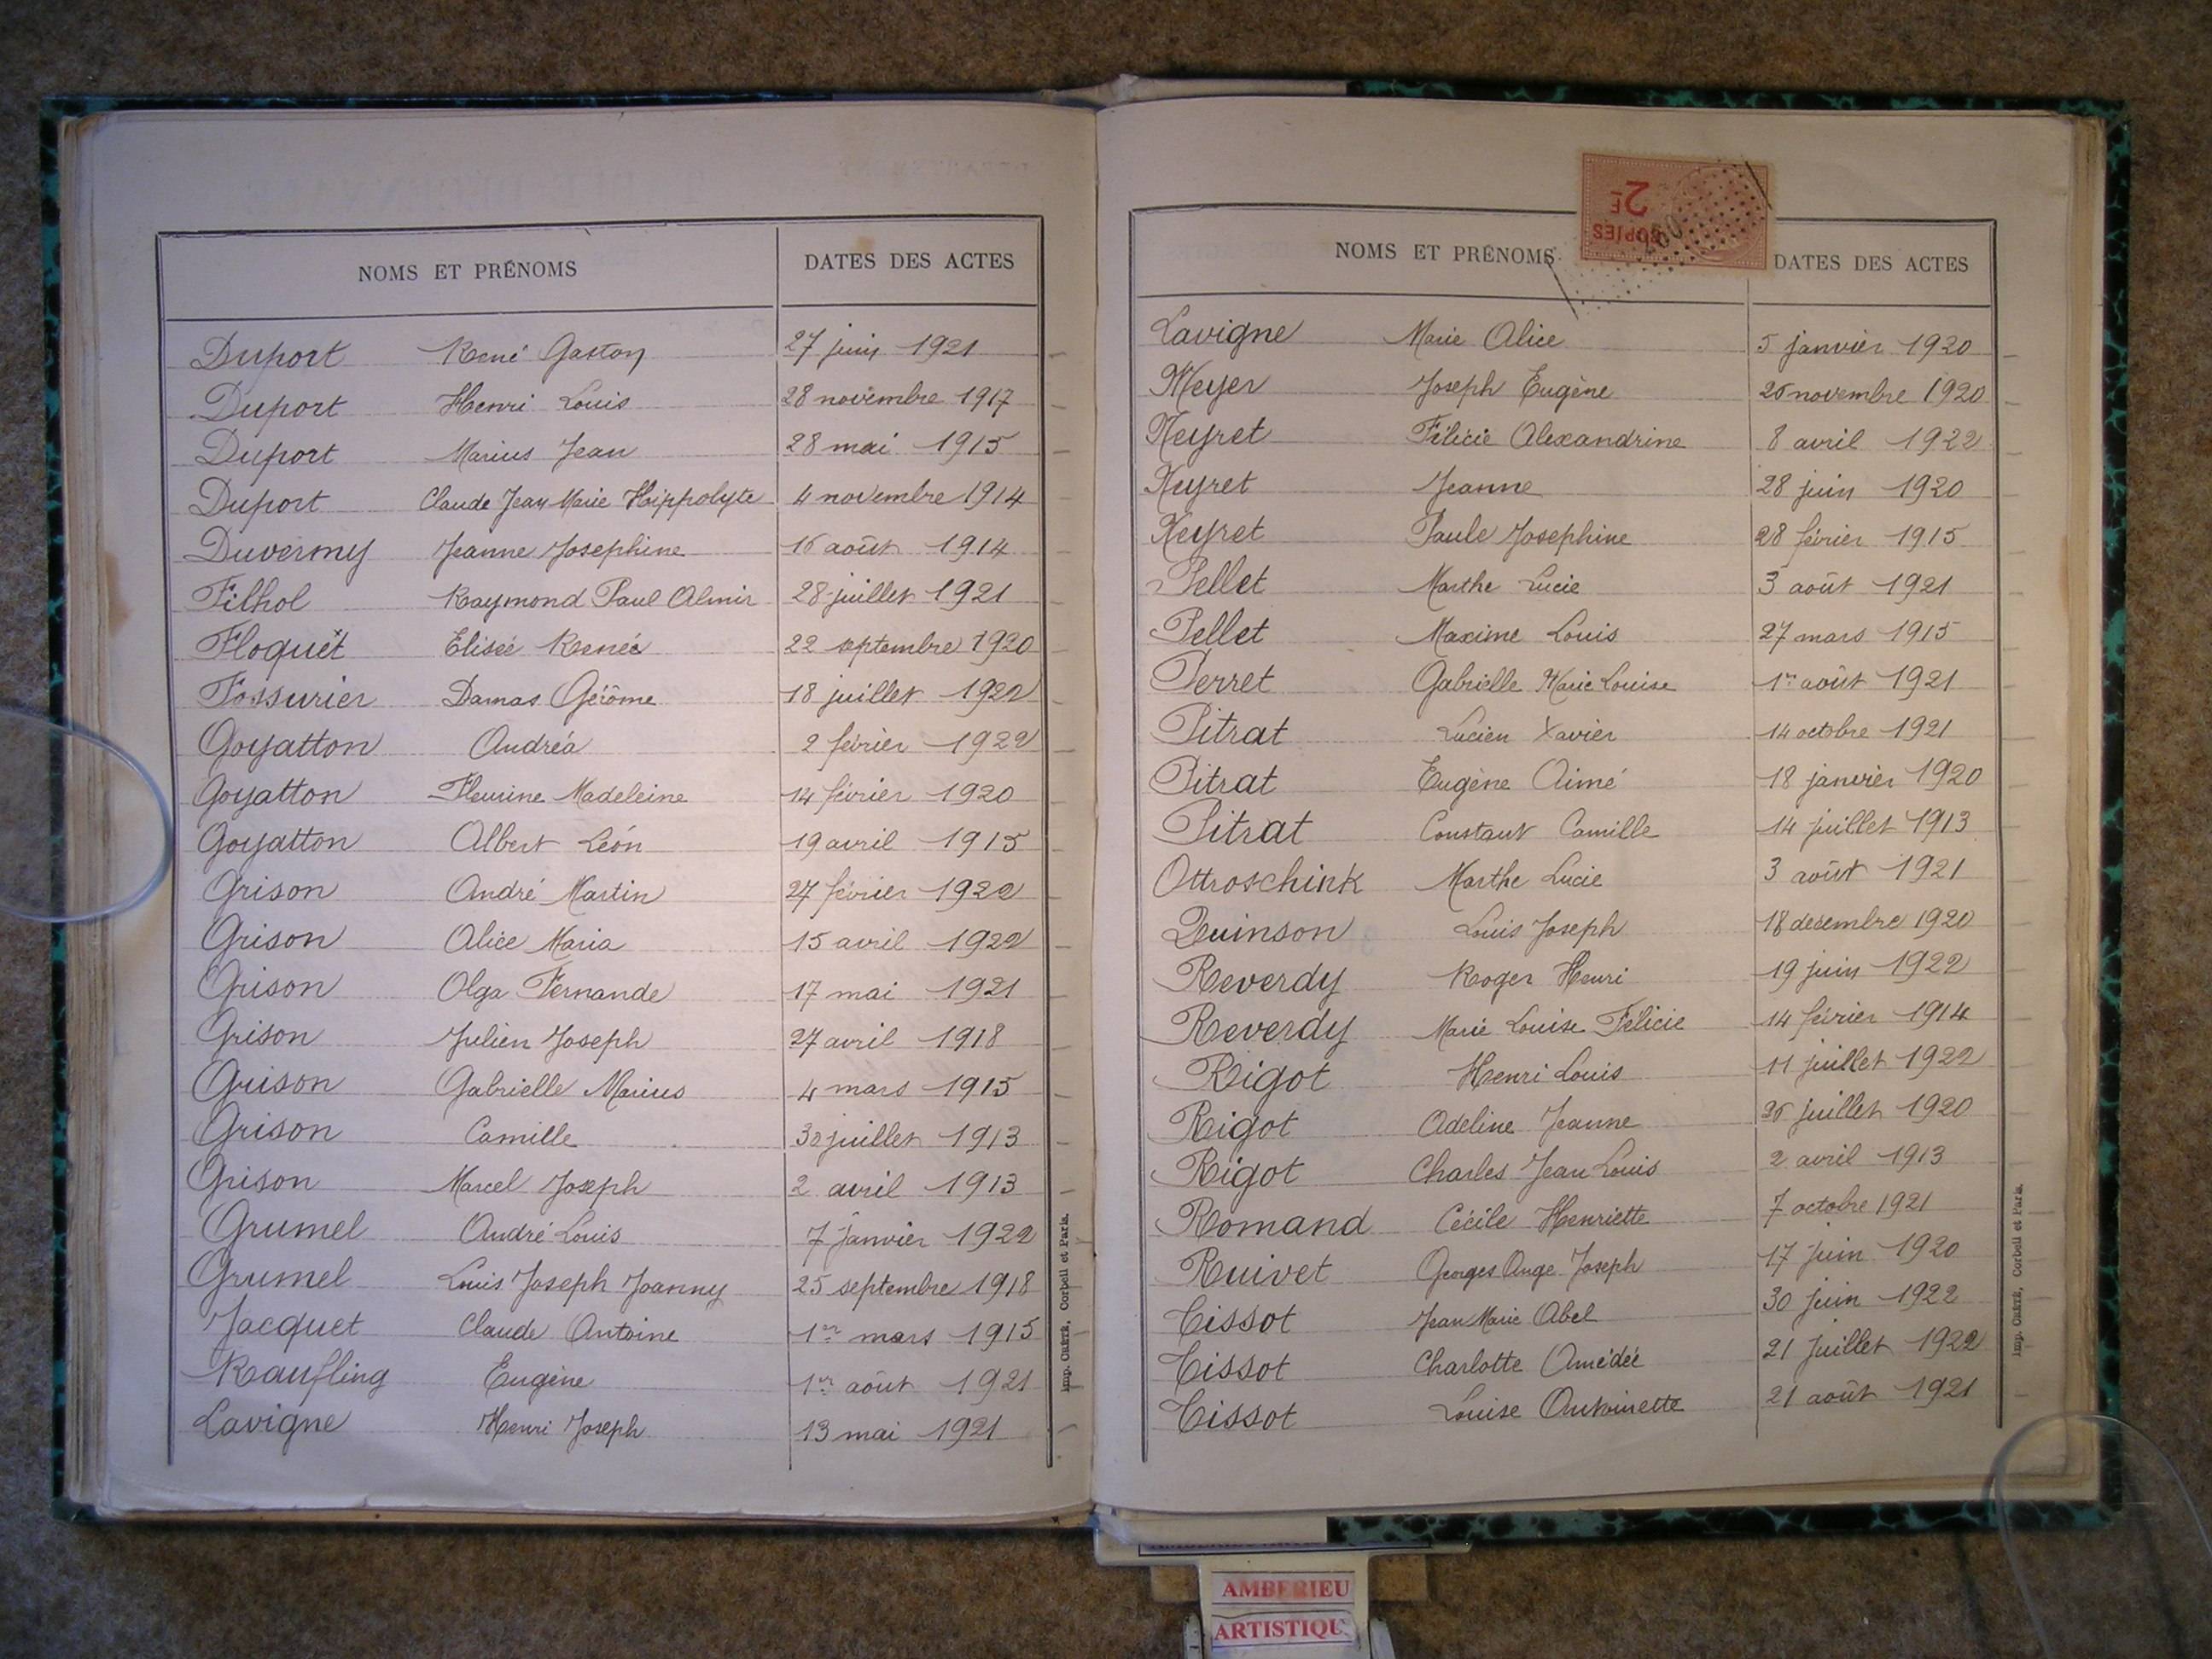 NOMS ET PRÉNOMS DATES DES ACTES
Duport René Gaston 27 juin 1921
Duport Henri Louis 28 novembre 1917
Duport Marius Jean 28 mai 1915
Duport Claude Jean Marie Hippolyte 4 novembre 1914
Duvermy Jeanne Josephine 16 août 1914
Filhol Raymond Paul Almir 28 juillet 1921
Floquet Elisée Renée 22 septembre 1920
Fossurier Damas Gérôme 18 juillet 1922
Goyatton Andréa 2 février 1922
Goyatton Fleurine Madeleine 14 février 1920
Goyatton Albert Léon 19 avril 1915
Grison André Martin 27 février 1922
Grison Alice Maria 15 avril 1922
Grison Olga Fernande 17 mai 1921
Grison Julien Joseph 27 avril 1918
Grison Gabrielle Marius 4 mars 1915
Grison Camille 30 juillet 1913
Grison Marcel Joseph 2 avril 1913
Grumel André Louis 7 janvier 1922
Grumel Louis Joseph Joanny 25 septembre 1918
Jacquet Claude Antoine 1er mars 1915
Kaufling Eugène 1er août 1921
Lavigne Henri Joseph 13 mai 1921
Imp. CRÉTÉ, Corbeil et Paris.
2F
COPIES
NOMS ET PRÉNOMS DATES DES ACTES
Lavigne Marie Alice 5 janvier 1920
Meyer Joseph Eugène 26 novembre 1920
Neyret Félicie Alexandrine 8 avril 1922
Neyret Jeanne 28 juin 1920
Neyret Paule Josephine 28 février 1915
Pellet Marthe Lucie 3 août 1921
Pellet Maxime Louis 27 mars 1915
Perret Gabrielle Marie Louise 1er août 1921
Pitrat Lucien Xavier 14 octobre 1921
Pitrat Eugène Aimé 18 janvier 1920
Pitrat Constant Camille 14 juillet 1913
Ottroschink Marthe Lucie 3 août 1921
Quinson Louis Joseph 18 decembre 1920
Reverdy Roger Henri 19 juin 1922
Reverdy Marie Louise Félicie 14 février 1914
Rigot Henri Louis 11 juillet 1922
Rigot Adeline Jeanne 26 juillet 1920
Rigot Charles Jean Louis 2 avril 1913
Romand Cécile Henriette 7 octobre 1921
Ruivet Georges Ange Joseph 17 juin 1920
Tissot Jean Marie Abel 30 juin 1922
Tissot Charlotte Amédée 21 juillet 1922
Tissot Louise Antoinette 21 août 1921
Imp. CRÉTÉ, Corbeil et Paris.
AMBERIEU
ARTISTIQU